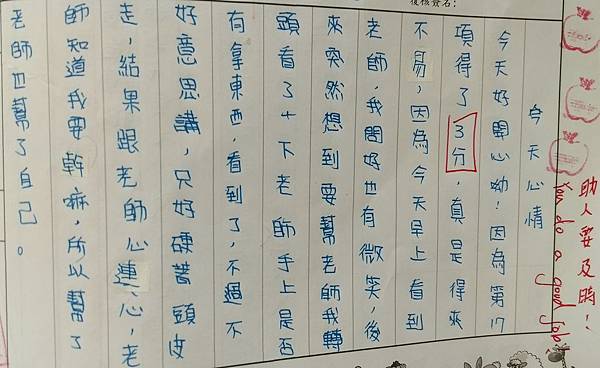 複檢簽名：
今天心情
今天好開心呦！因為第17
項得了3分，真是得來
不易，因為今天早上看到
老師，我問好也有微笑，後
來突然想到要幫老師我轉
頭看了一下老師手上是否
有拿東西，看到了，不過不
好意思講，只好硬著頭皮
走，結果跟老師心連心，老
師知道我要幹嘛，所以幫了
老師也幫了自己。
助人要及時！
You do a good job